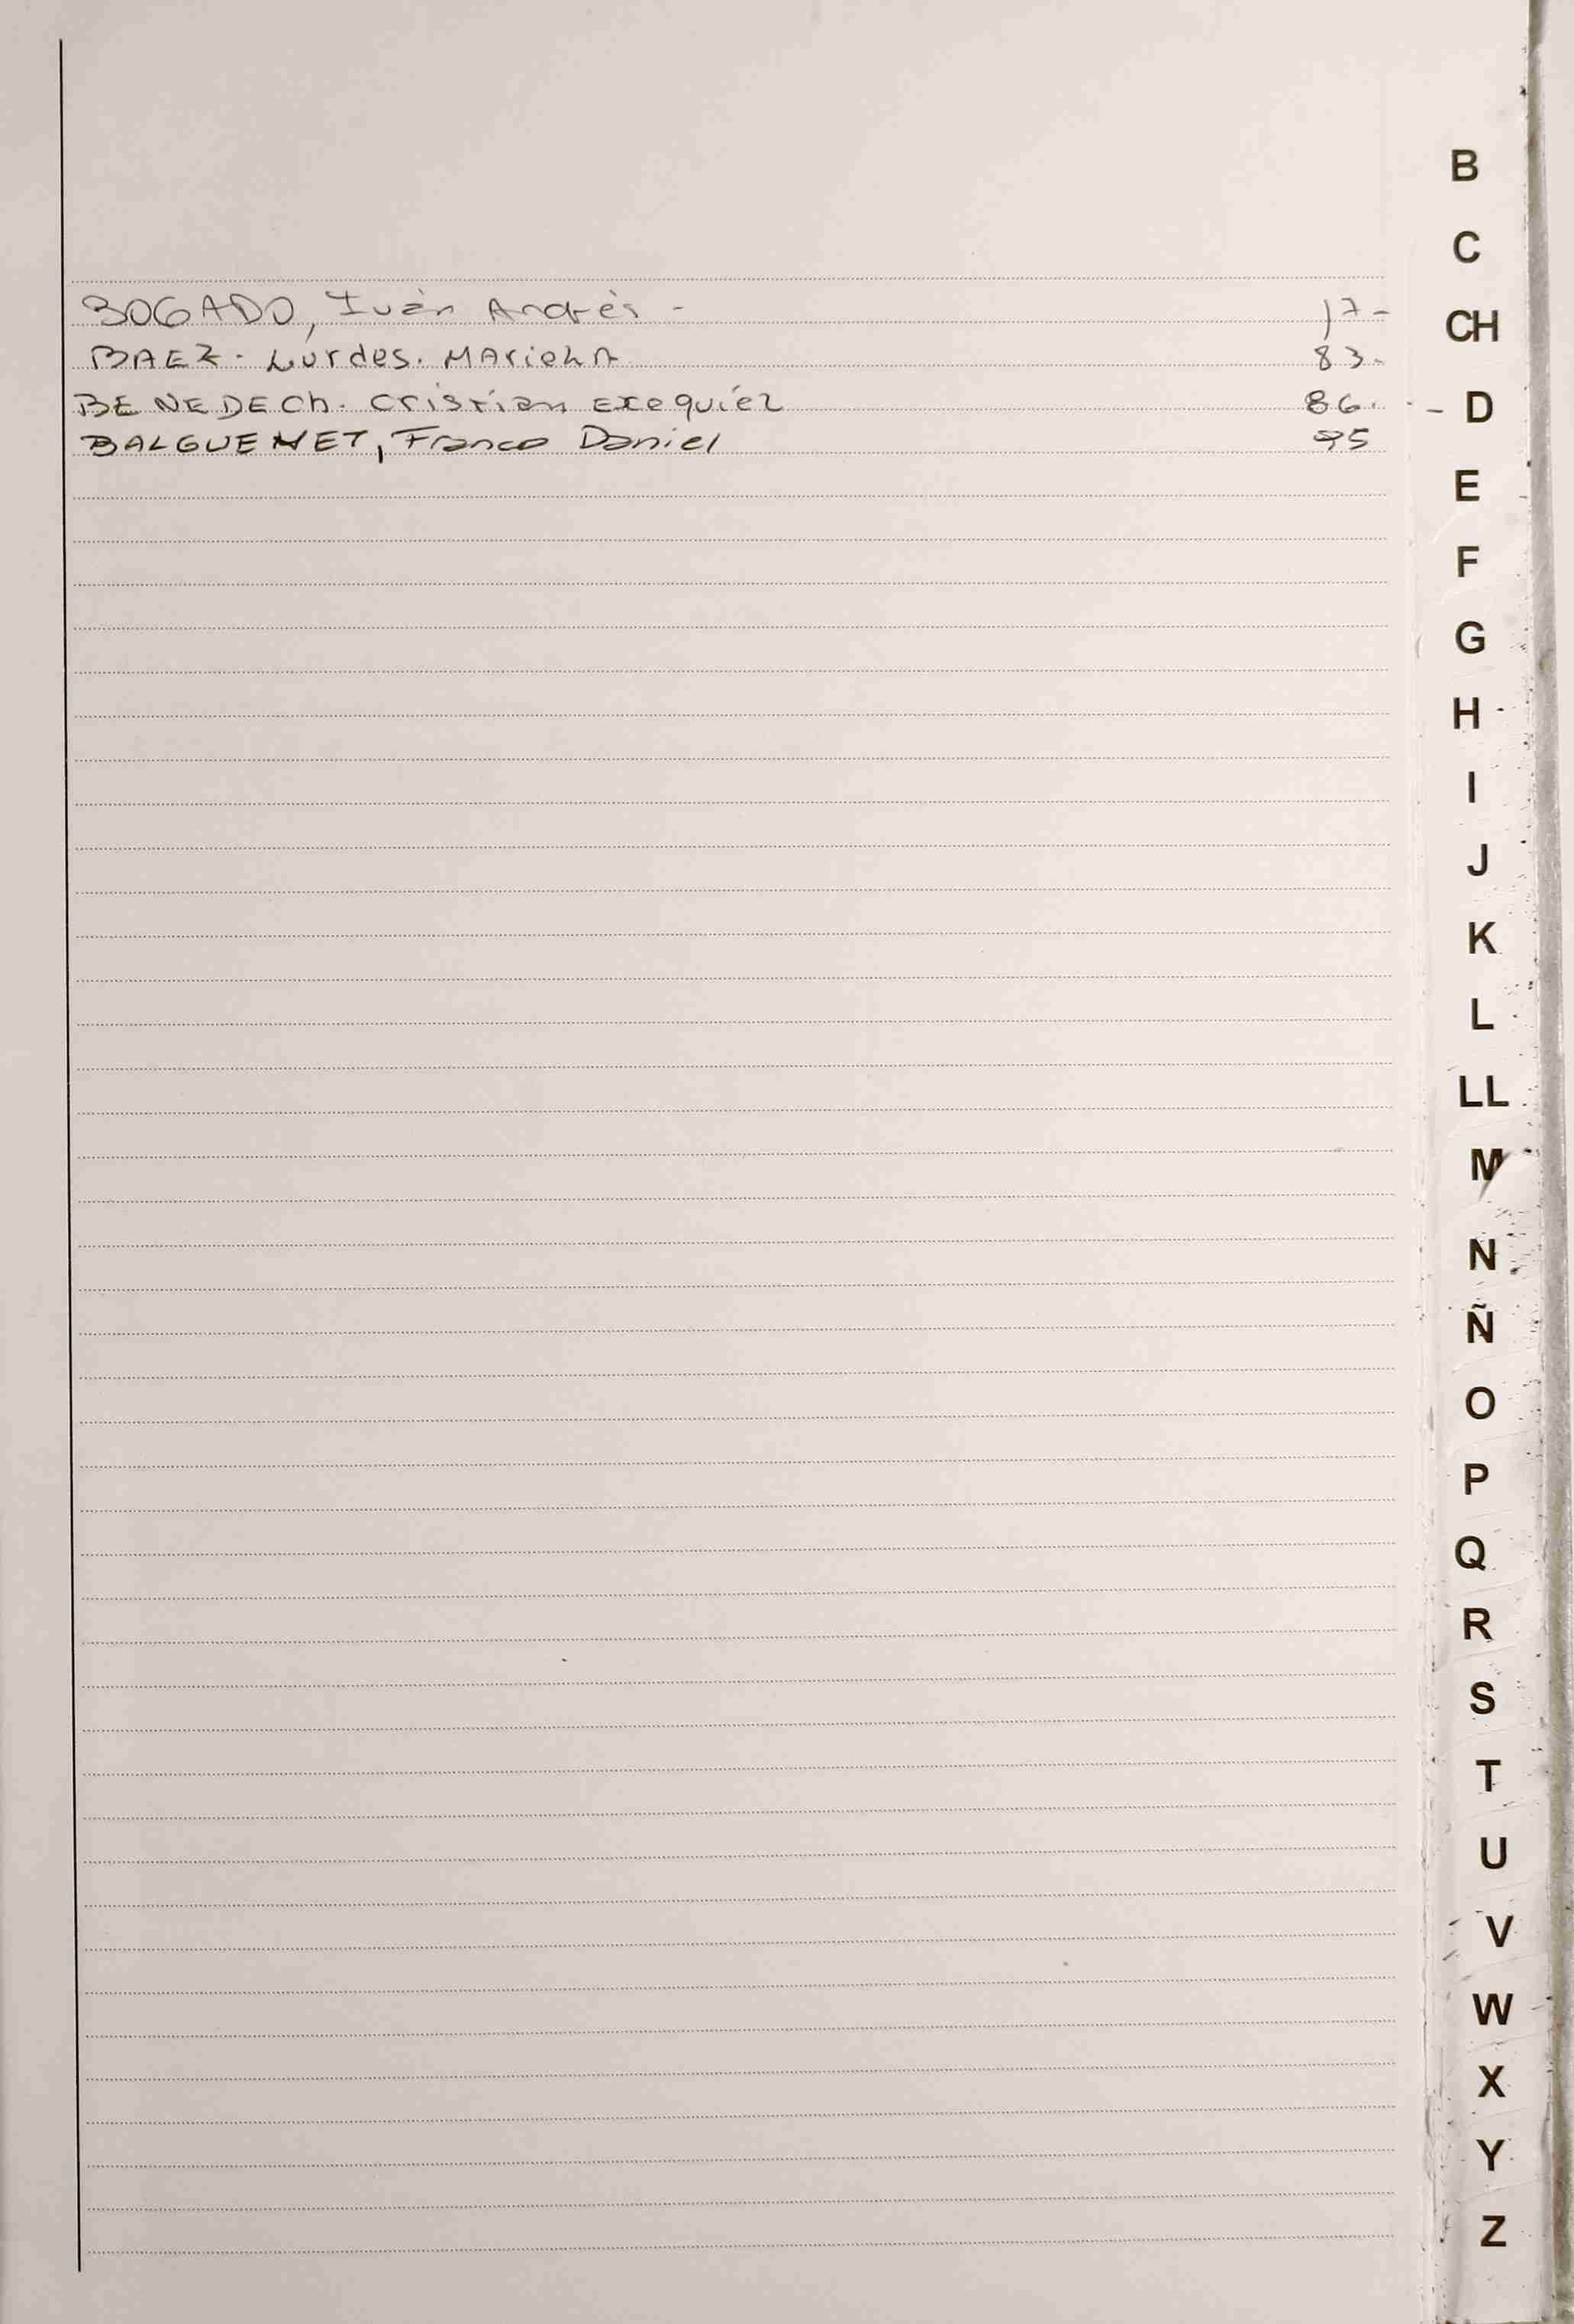 BOGADO, Iván Andrés - 17-
BAEZ. Lurdes. MARIELA 83.
BENEDECh. Cristian Exequiel 86.
BALGUENET, Franco Daniel 95
B
C
CH
D
E
F
G
H
I
J
K
L
LL
M
N
Ñ
O
P
Q
R
S
T
U
V
W
X
Y
Z